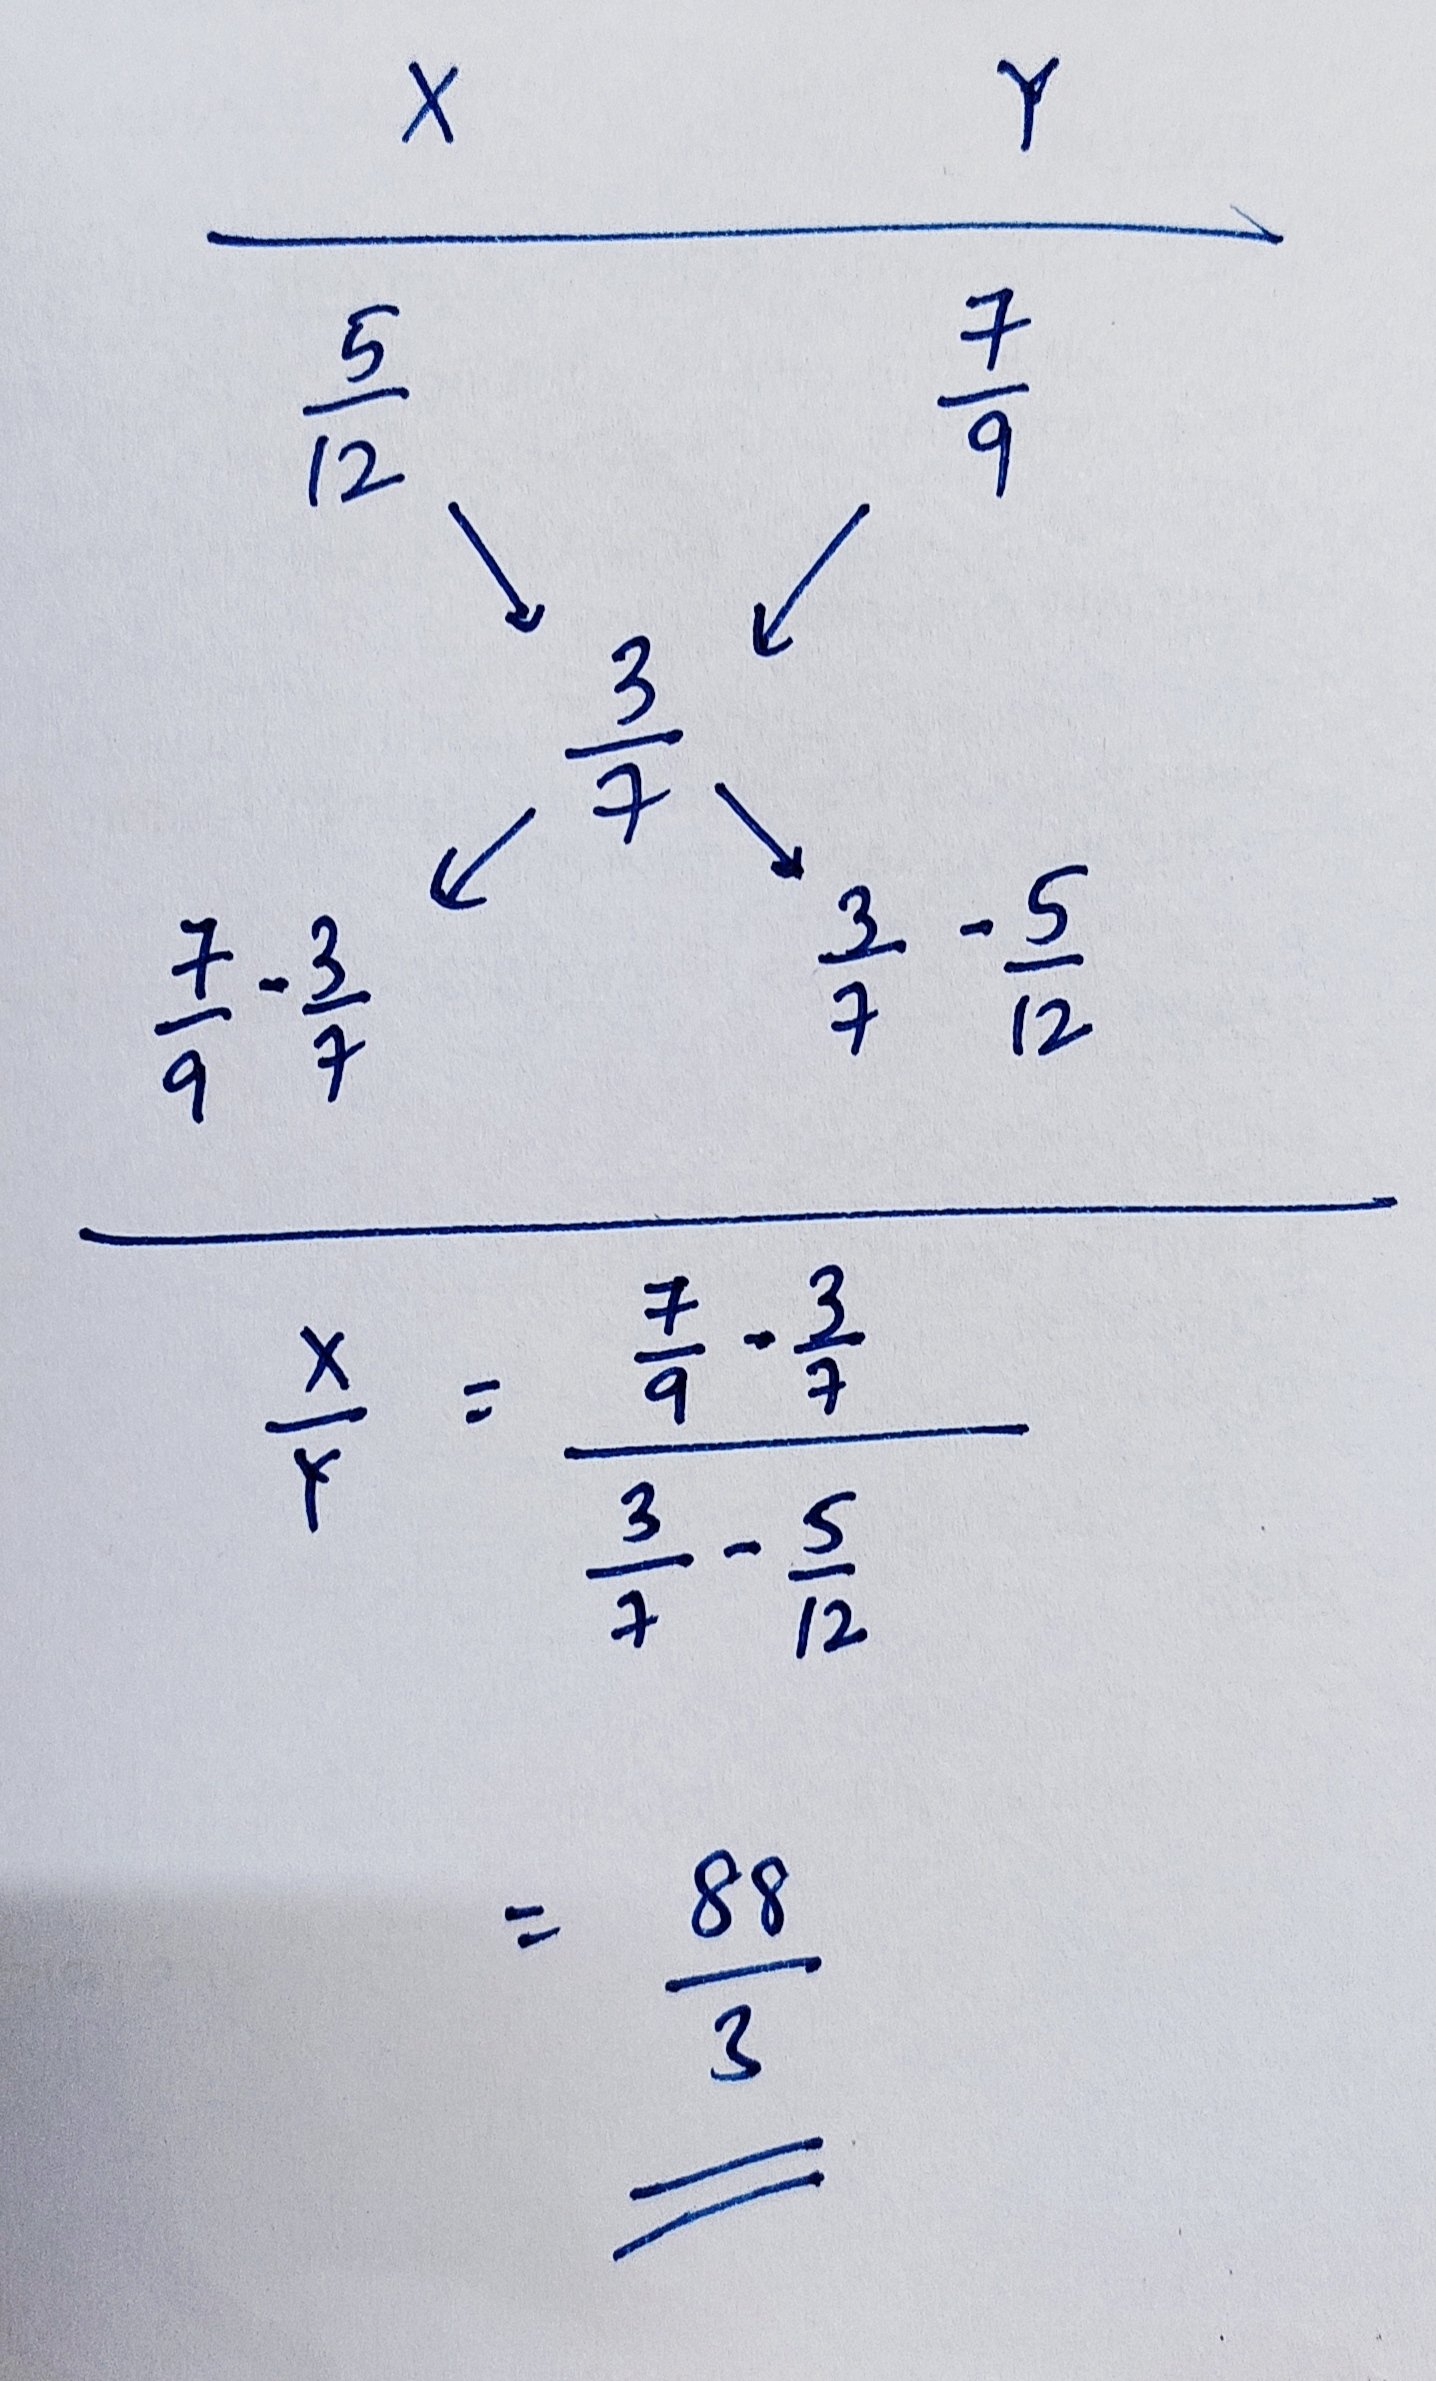 X Y
5/12 7/9
3/7
7/9 - 3/7 3/7 - 5/12
X/Y = (7/9 - 3/7)/(3/7 - 5/12)
= 88/3